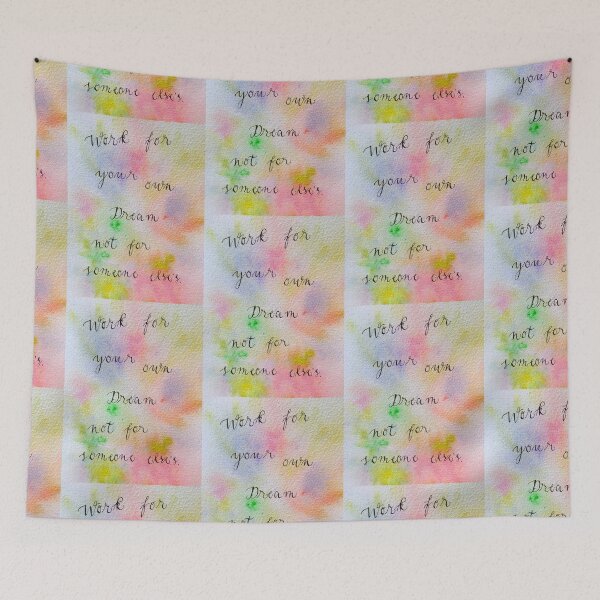 someone else's.
Work for
your own
Dream
not for
someone else's.
Work for
your own
Dream
not for
someone else's.
Work for
your own
Dream
not for
someone else's.
Work for
your own
Dream
not for
someone else's.
Work for
your own
Dream
not for
someone else's.
Work for
your own
Dream
not for
someone else's.
Work for
your own
Dream
not for
someone else's.
Work for
your
Dream
not for
someone
Work
your
Dream
not for
someone
Work
your
Dream